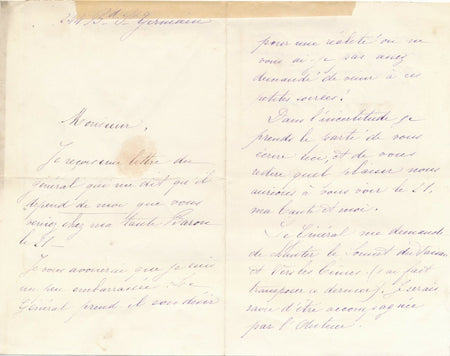 244 Bd St Germain
Monsieur,
Je reçois une lettre du
général qui me dit qu'il
dépend de moi que vous
veniez chez ma tante Baron
le 21 –
Je vous avouerai que je suis
un peu embarrassée. Le
Général prend il son désir
pour une réalité ou ne
vous ai je pas assez
demandé de venir à ces
petites soirées!
Dans l'incertitude je
prends le parti de vous
écrire, et de vous
redire quel plaisir nous
aurions à vous voir le 21,
ma tante et moi.
Le Général me demande
de chanter le Sonnet
et Vers les Cimes (j'ai fait
transposer ce dernier). Je serais
ravie d'être accompagnée
par l'Auteur.